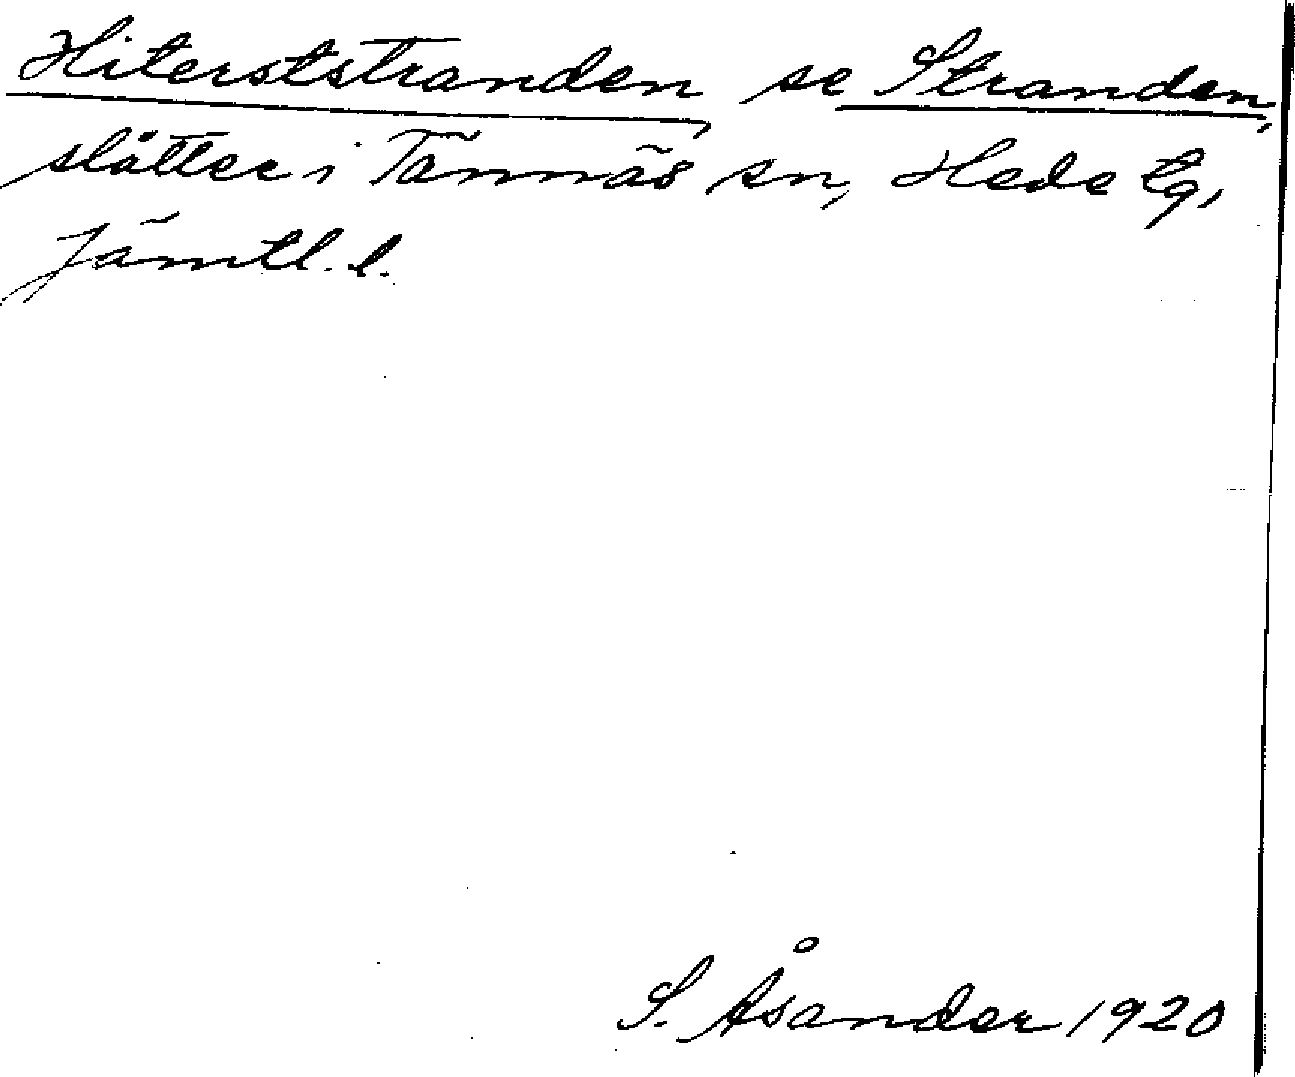 Hiterststranden, se Stranden,
slåtter i Tännäs sn, Hede tg,
Jämtl. l.
S. Åsander 1920